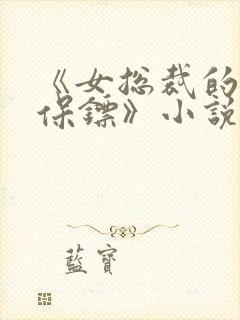 《女总裁的
保镖》小說
藍寶